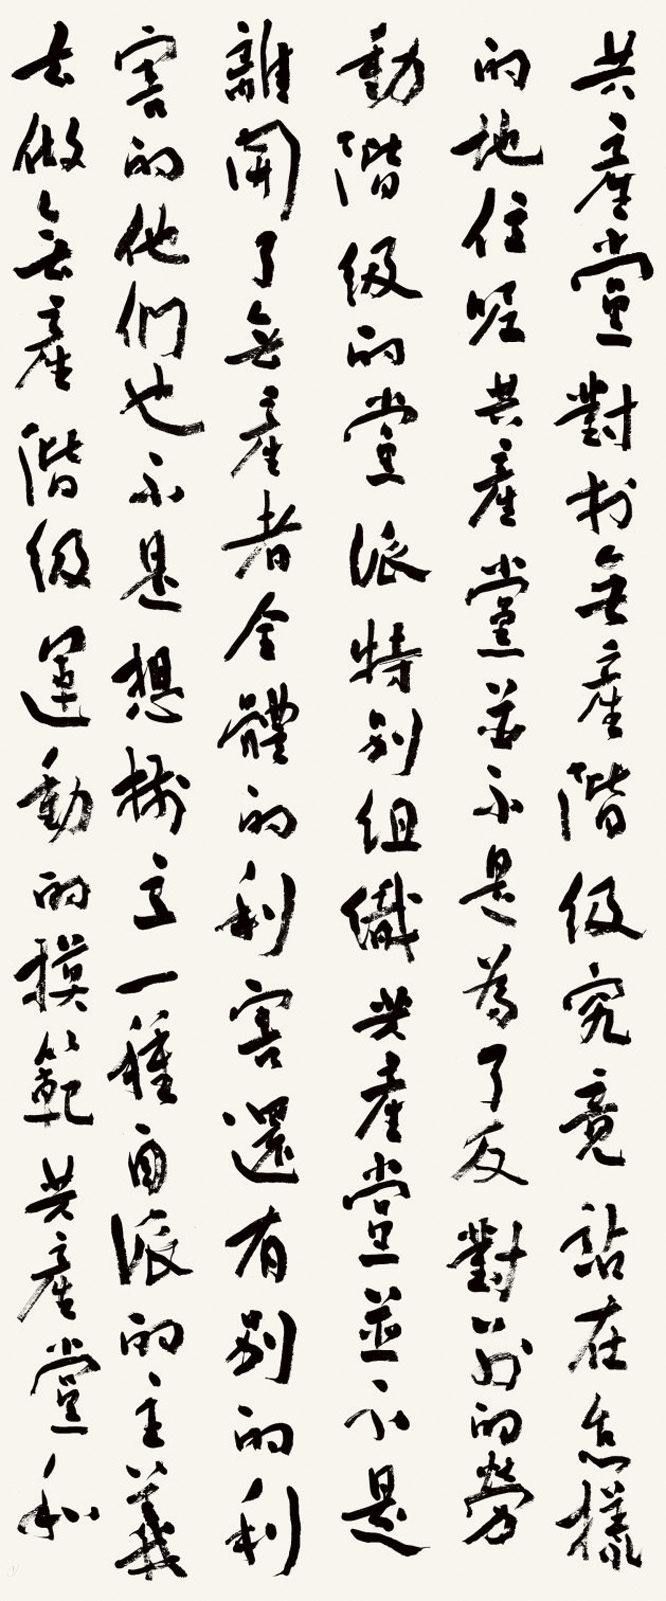 共產黨對於無產階級究竟站在怎樣
的地位呢共產黨並不是為了反對別的勞
動階級的黨派特別組織共產黨並不是
離開了無產者全體的利害還有別的利
害的他們也不是想樹立一種自派的主義
去做無產階級運動的模範共產黨和